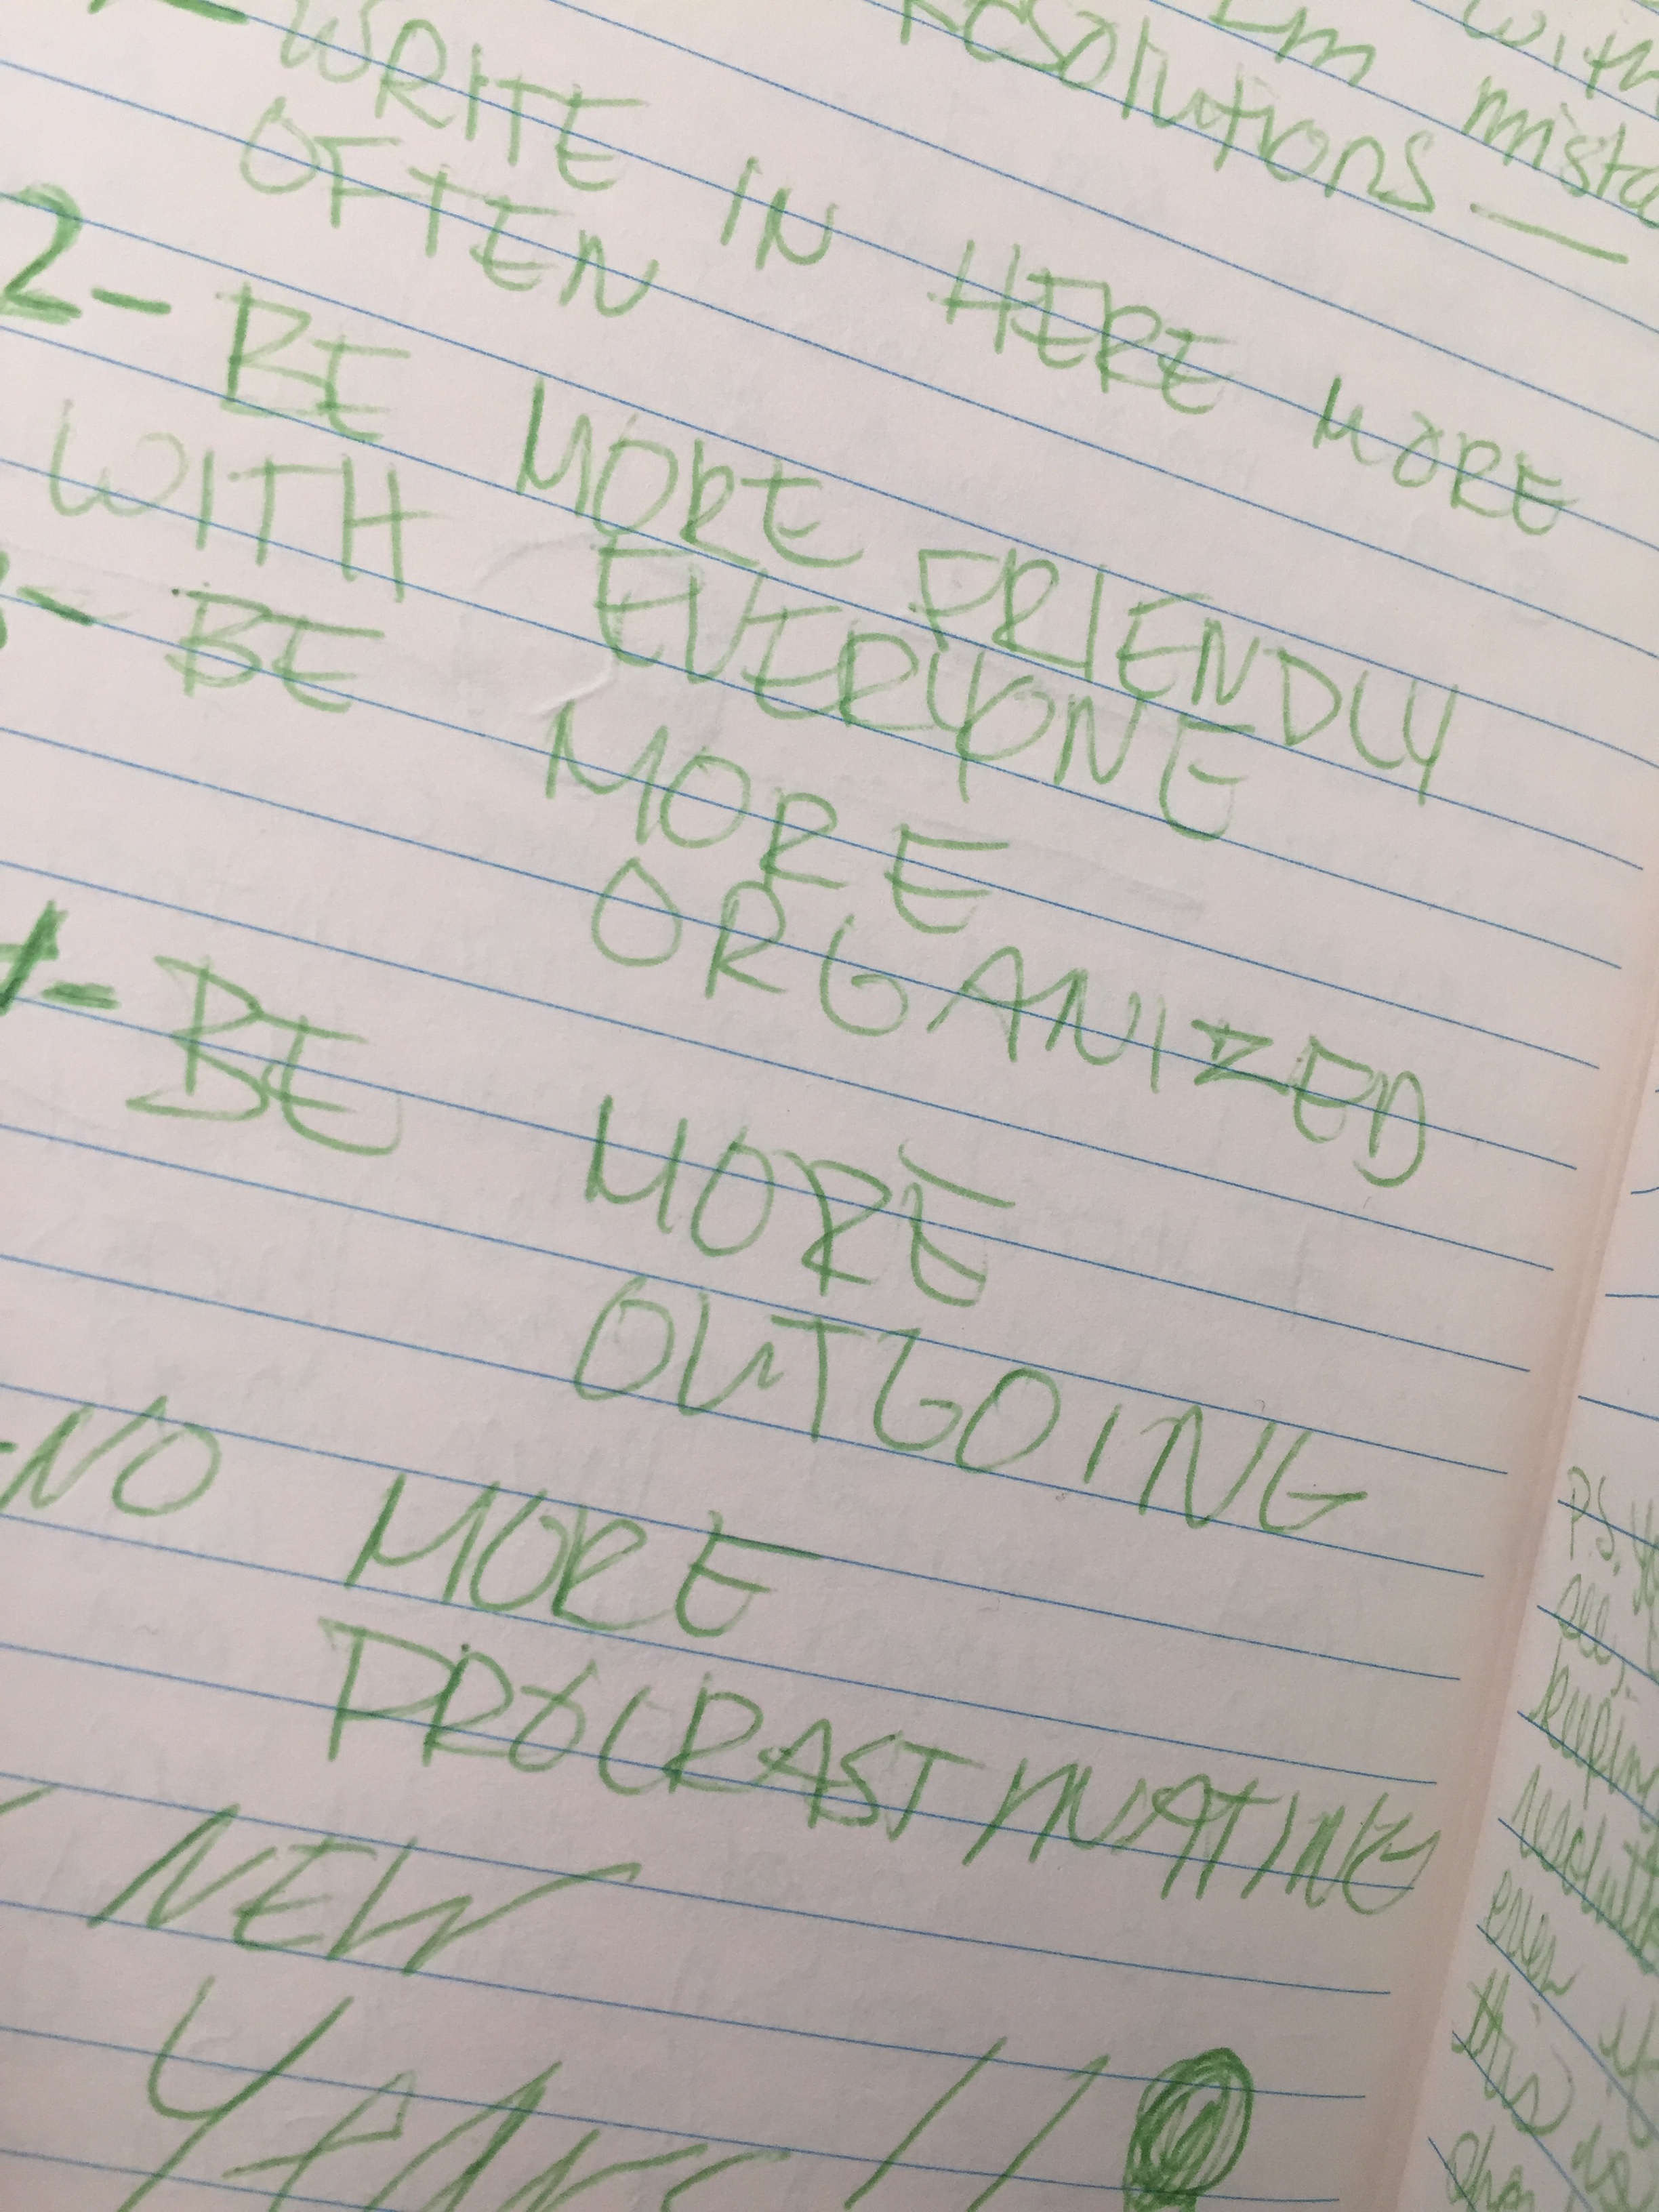 with
Im mista
Resolutions —
- WRITE IN HERE MORE
OFTEN
2- BE MORE FRIENDLY
WITH EVERYONE
3- BE MORE
ORGANIZED
4- BE MORE
OUTGOING
-NO MORE
PROCRASTINATING
NEW
YEARS !!
P.S. yo
all,
keeping
resolutio
even if
this is